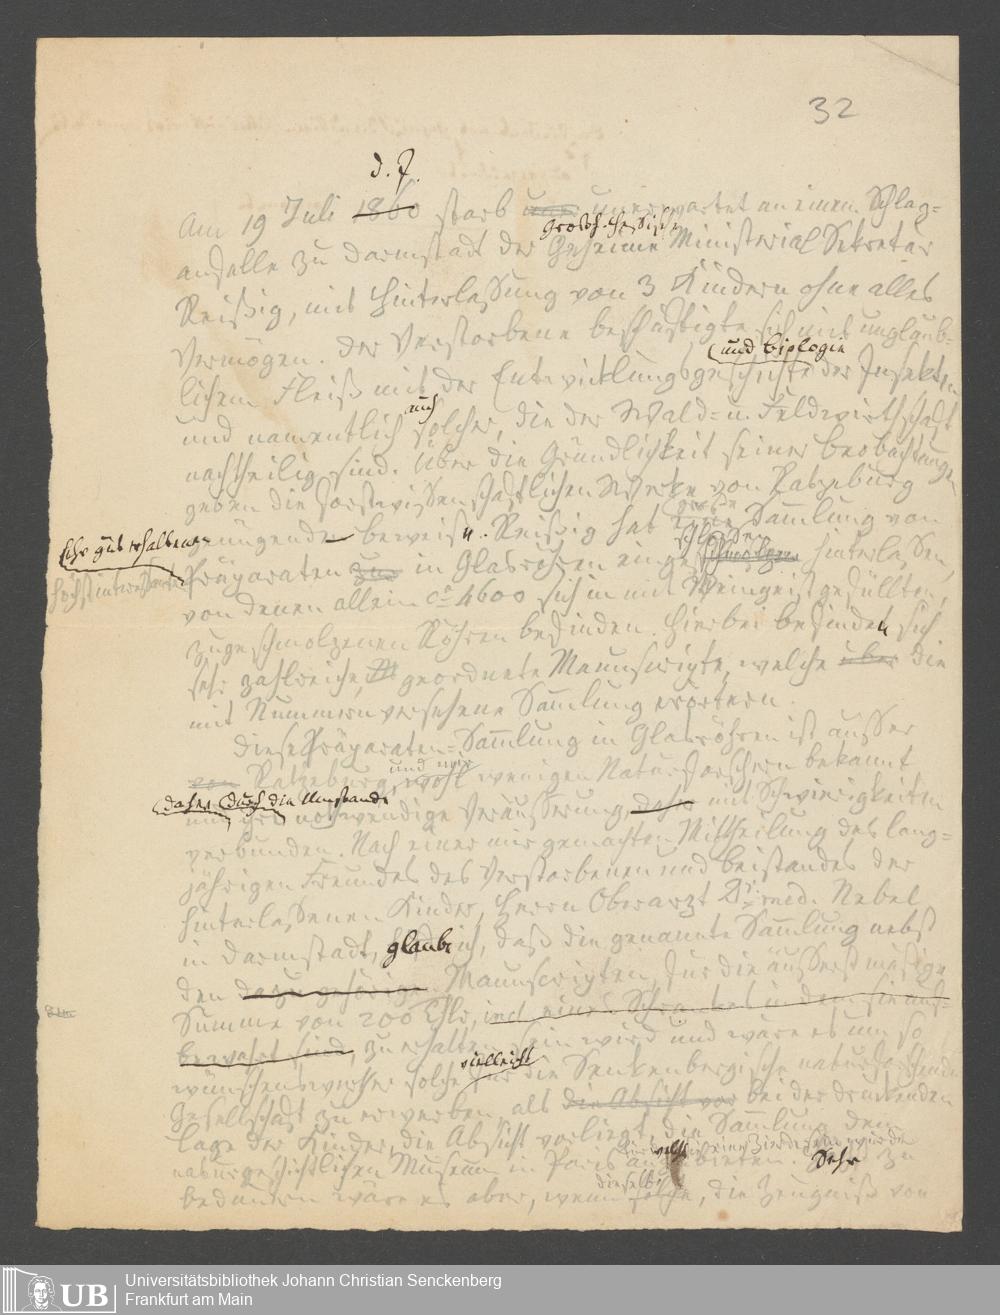 32
d. J.
Am 19 Juli 1860 starb unerwartet an einem Schlag-
Grossh. Hessische
anfalle zu Darmstadt der Geheime Ministerial Sekretär
Reißig, mit Hinterlassung von 3 Kindern ohne alles
Vermögen. Der Verstorbene beschäftigte sich mit unglaub-
und Biologie
lichem Fleiß mit der Entwicklungsgeschichte der Insekten
auch
und namentlich solcher, die der Wald- u. Feldwirthschaft
nachtheilig sind. Über die Gründlichkeit seiner Beobachtungen
geben die forstwissenschaftlichen Werke von Ratzeburg
große
genügende Beweise. Reißig hat eine Sammlung von
Sehr gut erhaltenen
schlossen
höchst interessanten Präparaten in Glasröhren eingeschmolzen hinterlassen,
von denen allein ca 4600 sich in mit Weingeist gefüllten,
zugeschmolzenen Röhren befinden. Hierbei befinden sich
sehr zahlreiche, geordnete Manuscripte, welche über die
mit Nummern versehene Sammlung erörtern.
Diese Präparaten-Sammlung in Glasröhren ist ausser
und mir
von Ratzeburg, wohl wenigen Naturforschern bekannt
daher durch die Umstände
und ihre nothwendige Veräusserung, daher mit Schwierigkeiten
verbunden. Nach einer mir gemachten Mittheilung des lang-
jährigen Freundes des Verstorbenen und Beistandes der
hinterlassenen Kinder, Herrn Oberarzt Dr. med. Nebel
glaube
in Darmstadt, ich, daß die genannte Sammlung nebst
den dazu gehörigen Manuscripten, für die äusserst mäßige
Summe von 200 Thlr, incl. eines Schrankes in dem sie auf-
bewahrt sind, zu erhalten sein wird und wäre es um so
vielleicht
wünschenswerther solche für die Senkenbergische naturforschende
Gesellschaft zu erwerben, als die Absicht vor bei der drückenden
Lage der Kinder, die Absicht vorliegt, die Sammlung dem
eine Zierde sein würde
naturgeschichtlichen Museum in Paris anzubieten. Sehr zu
dieselbe
bedauern wäre es aber, wenn solche, die Zeugniß von
Universitätsbibliothek Johann Christian Senckenberg
Frankfurt am Main
UB